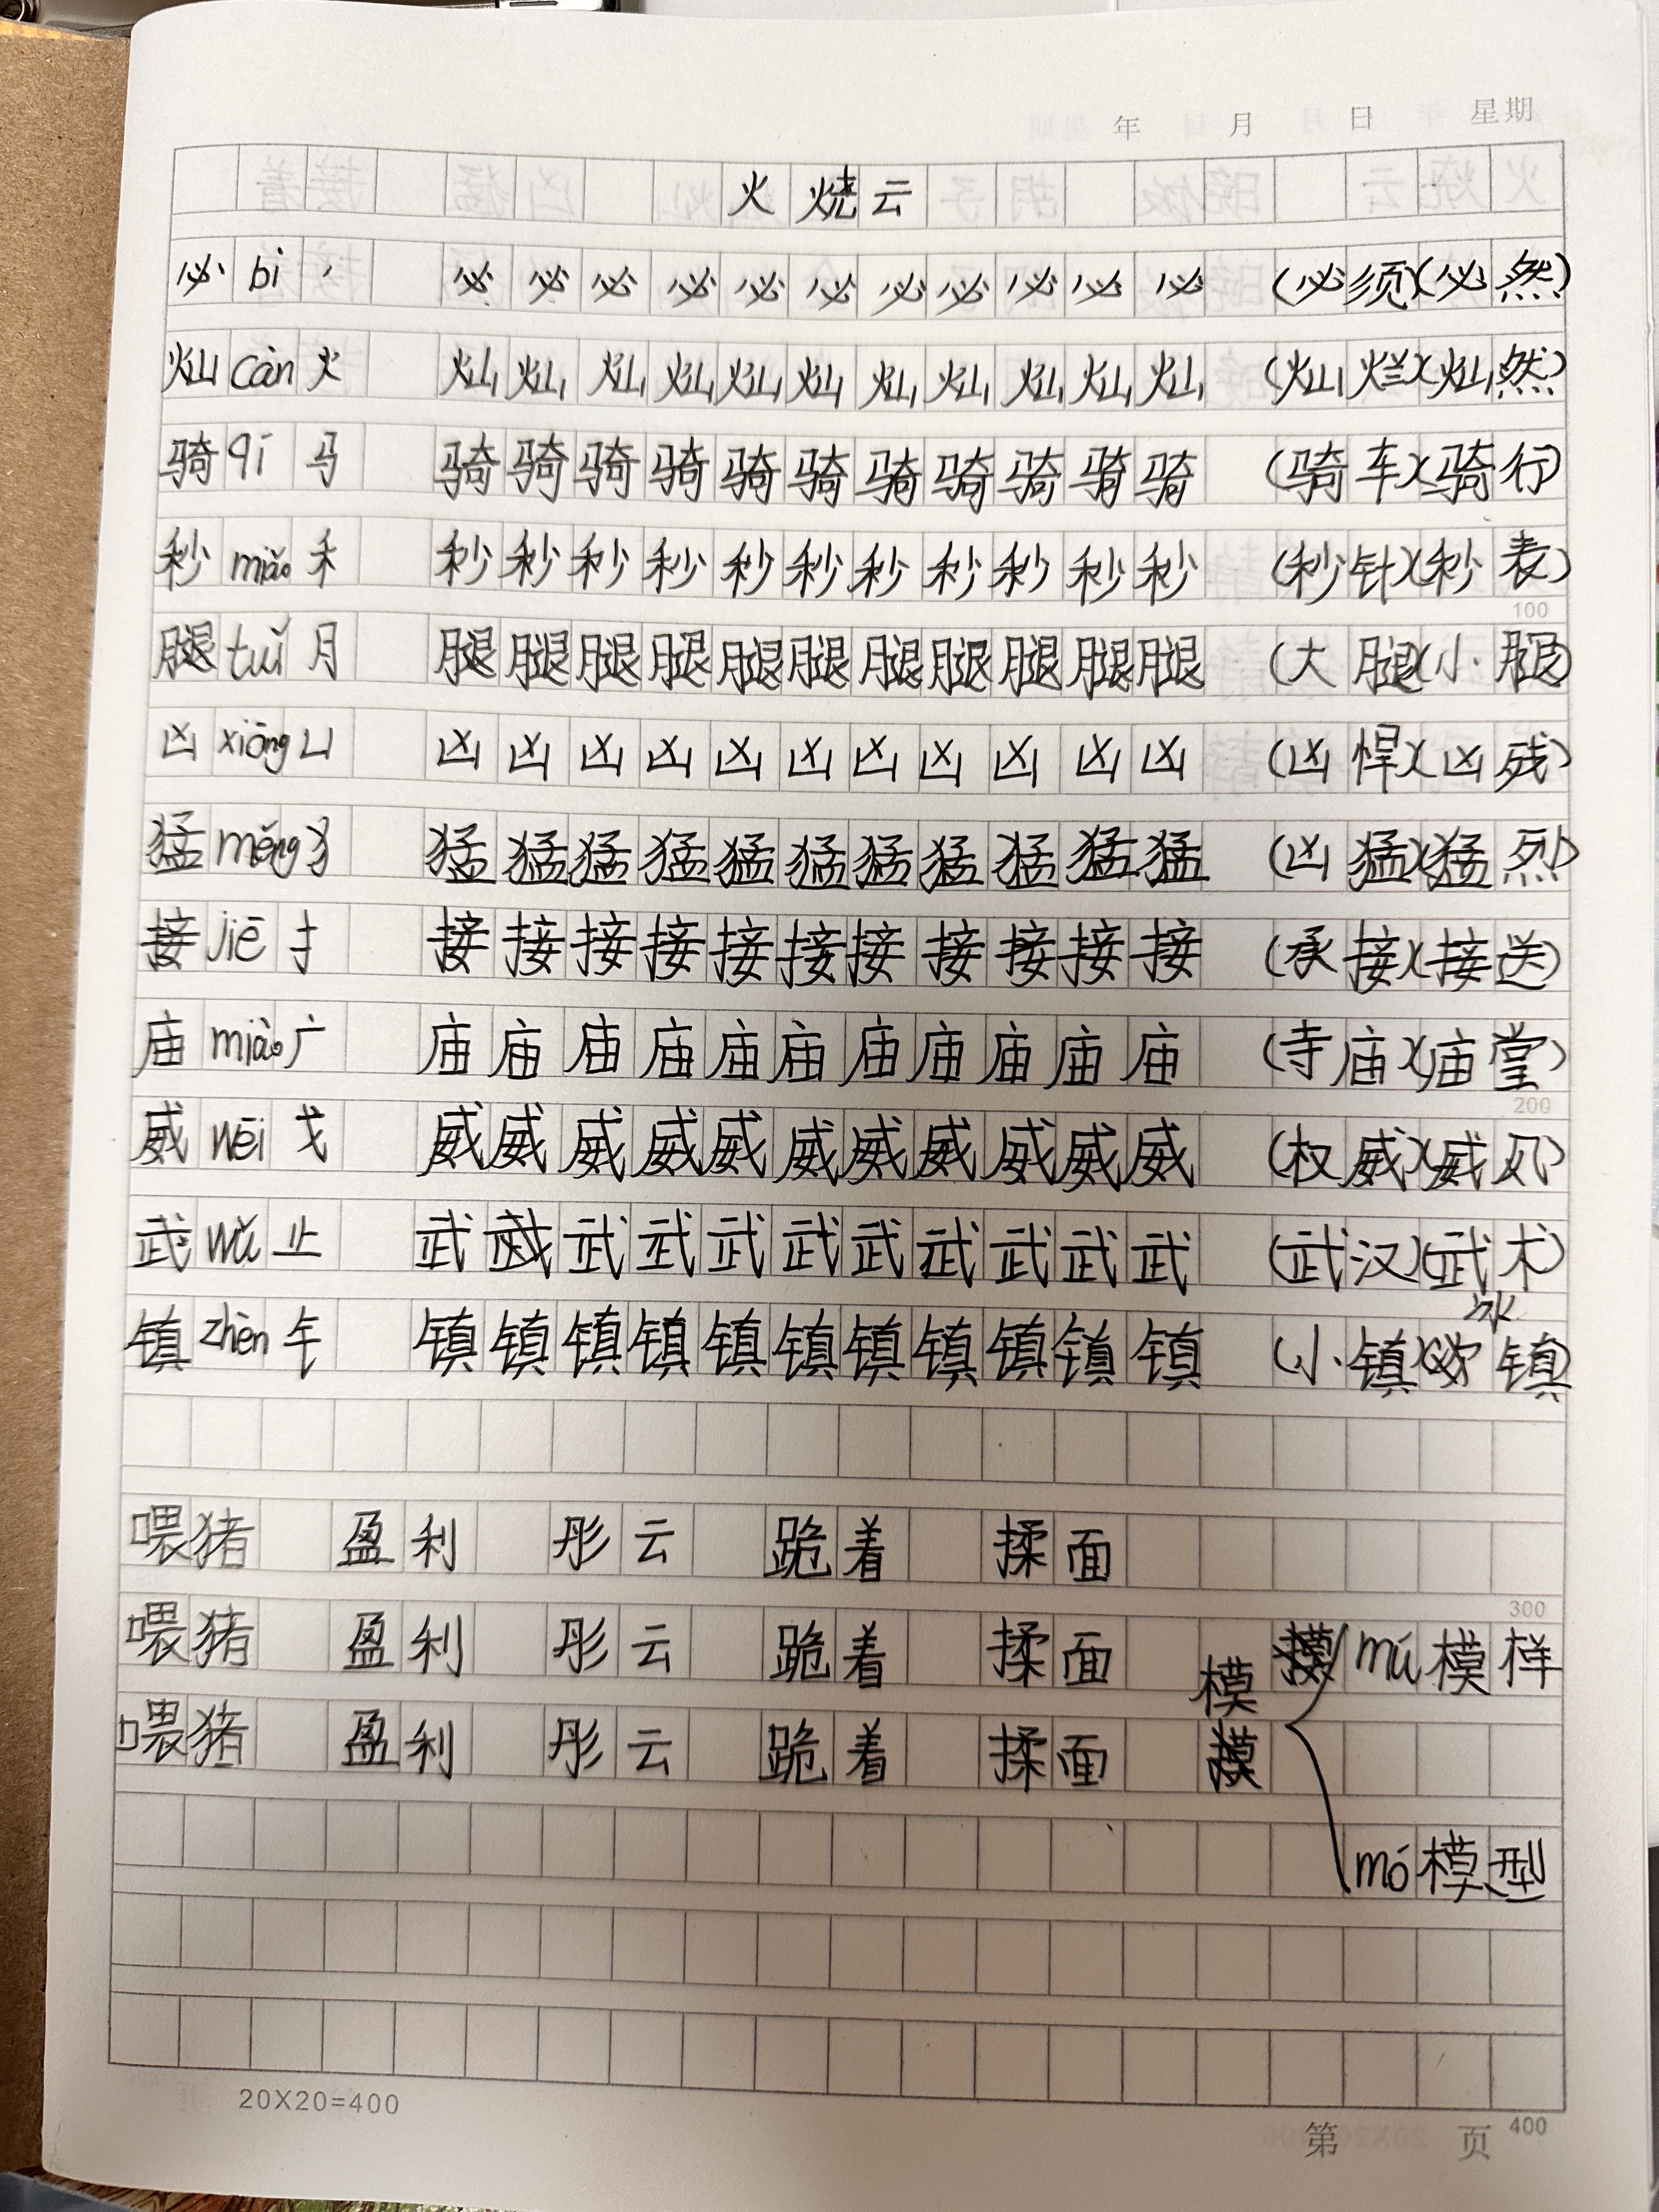 年 月 日 星期
火烧云
必 bì 丶 必必必必必必必必必必必 (必须)(必然)
灿 càn 火 灿灿灿灿灿灿灿灿灿灿灿 (灿烂)(灿然)
骑 qí 马 骑骑骑骑骑骑骑骑骑骑骑 (骑车)(骑行)
秒 miǎo 禾 秒秒秒秒秒秒秒秒秒秒秒 (秒针)(秒表)
100
腿 tuǐ 月 腿腿腿腿腿腿腿腿腿腿腿 (大腿)(小腿)
凶 xiōng 凵 凶凶凶凶凶凶凶凶凶凶凶 (凶悍)(凶残)
猛 měng 犭 猛猛猛猛猛猛猛猛猛猛猛 (凶猛)(猛烈)
接 jiē 扌 接接接接接接接接接接接 (承接)(接送)
庙 miào 广 庙庙庙庙庙庙庙庙庙庙庙 (寺庙)(庙堂)
200
威 wēi 戈 威威威威威威威威威威威 (权威)(威风)
武 wǔ 止 武武武武武武武武武武武 (武汉)(武术)
镇 zhèn 钅 镇镇镇镇镇镇镇镇镇镇镇 (小镇)(冰镇)
喂猪 盈利 彤云 跪着 揉面
300
喂猪 盈利 彤云 跪着 揉面 模 mú 模样
喂猪 盈利 彤云 跪着 揉面
mó 模型
20X20=400
第 页 400